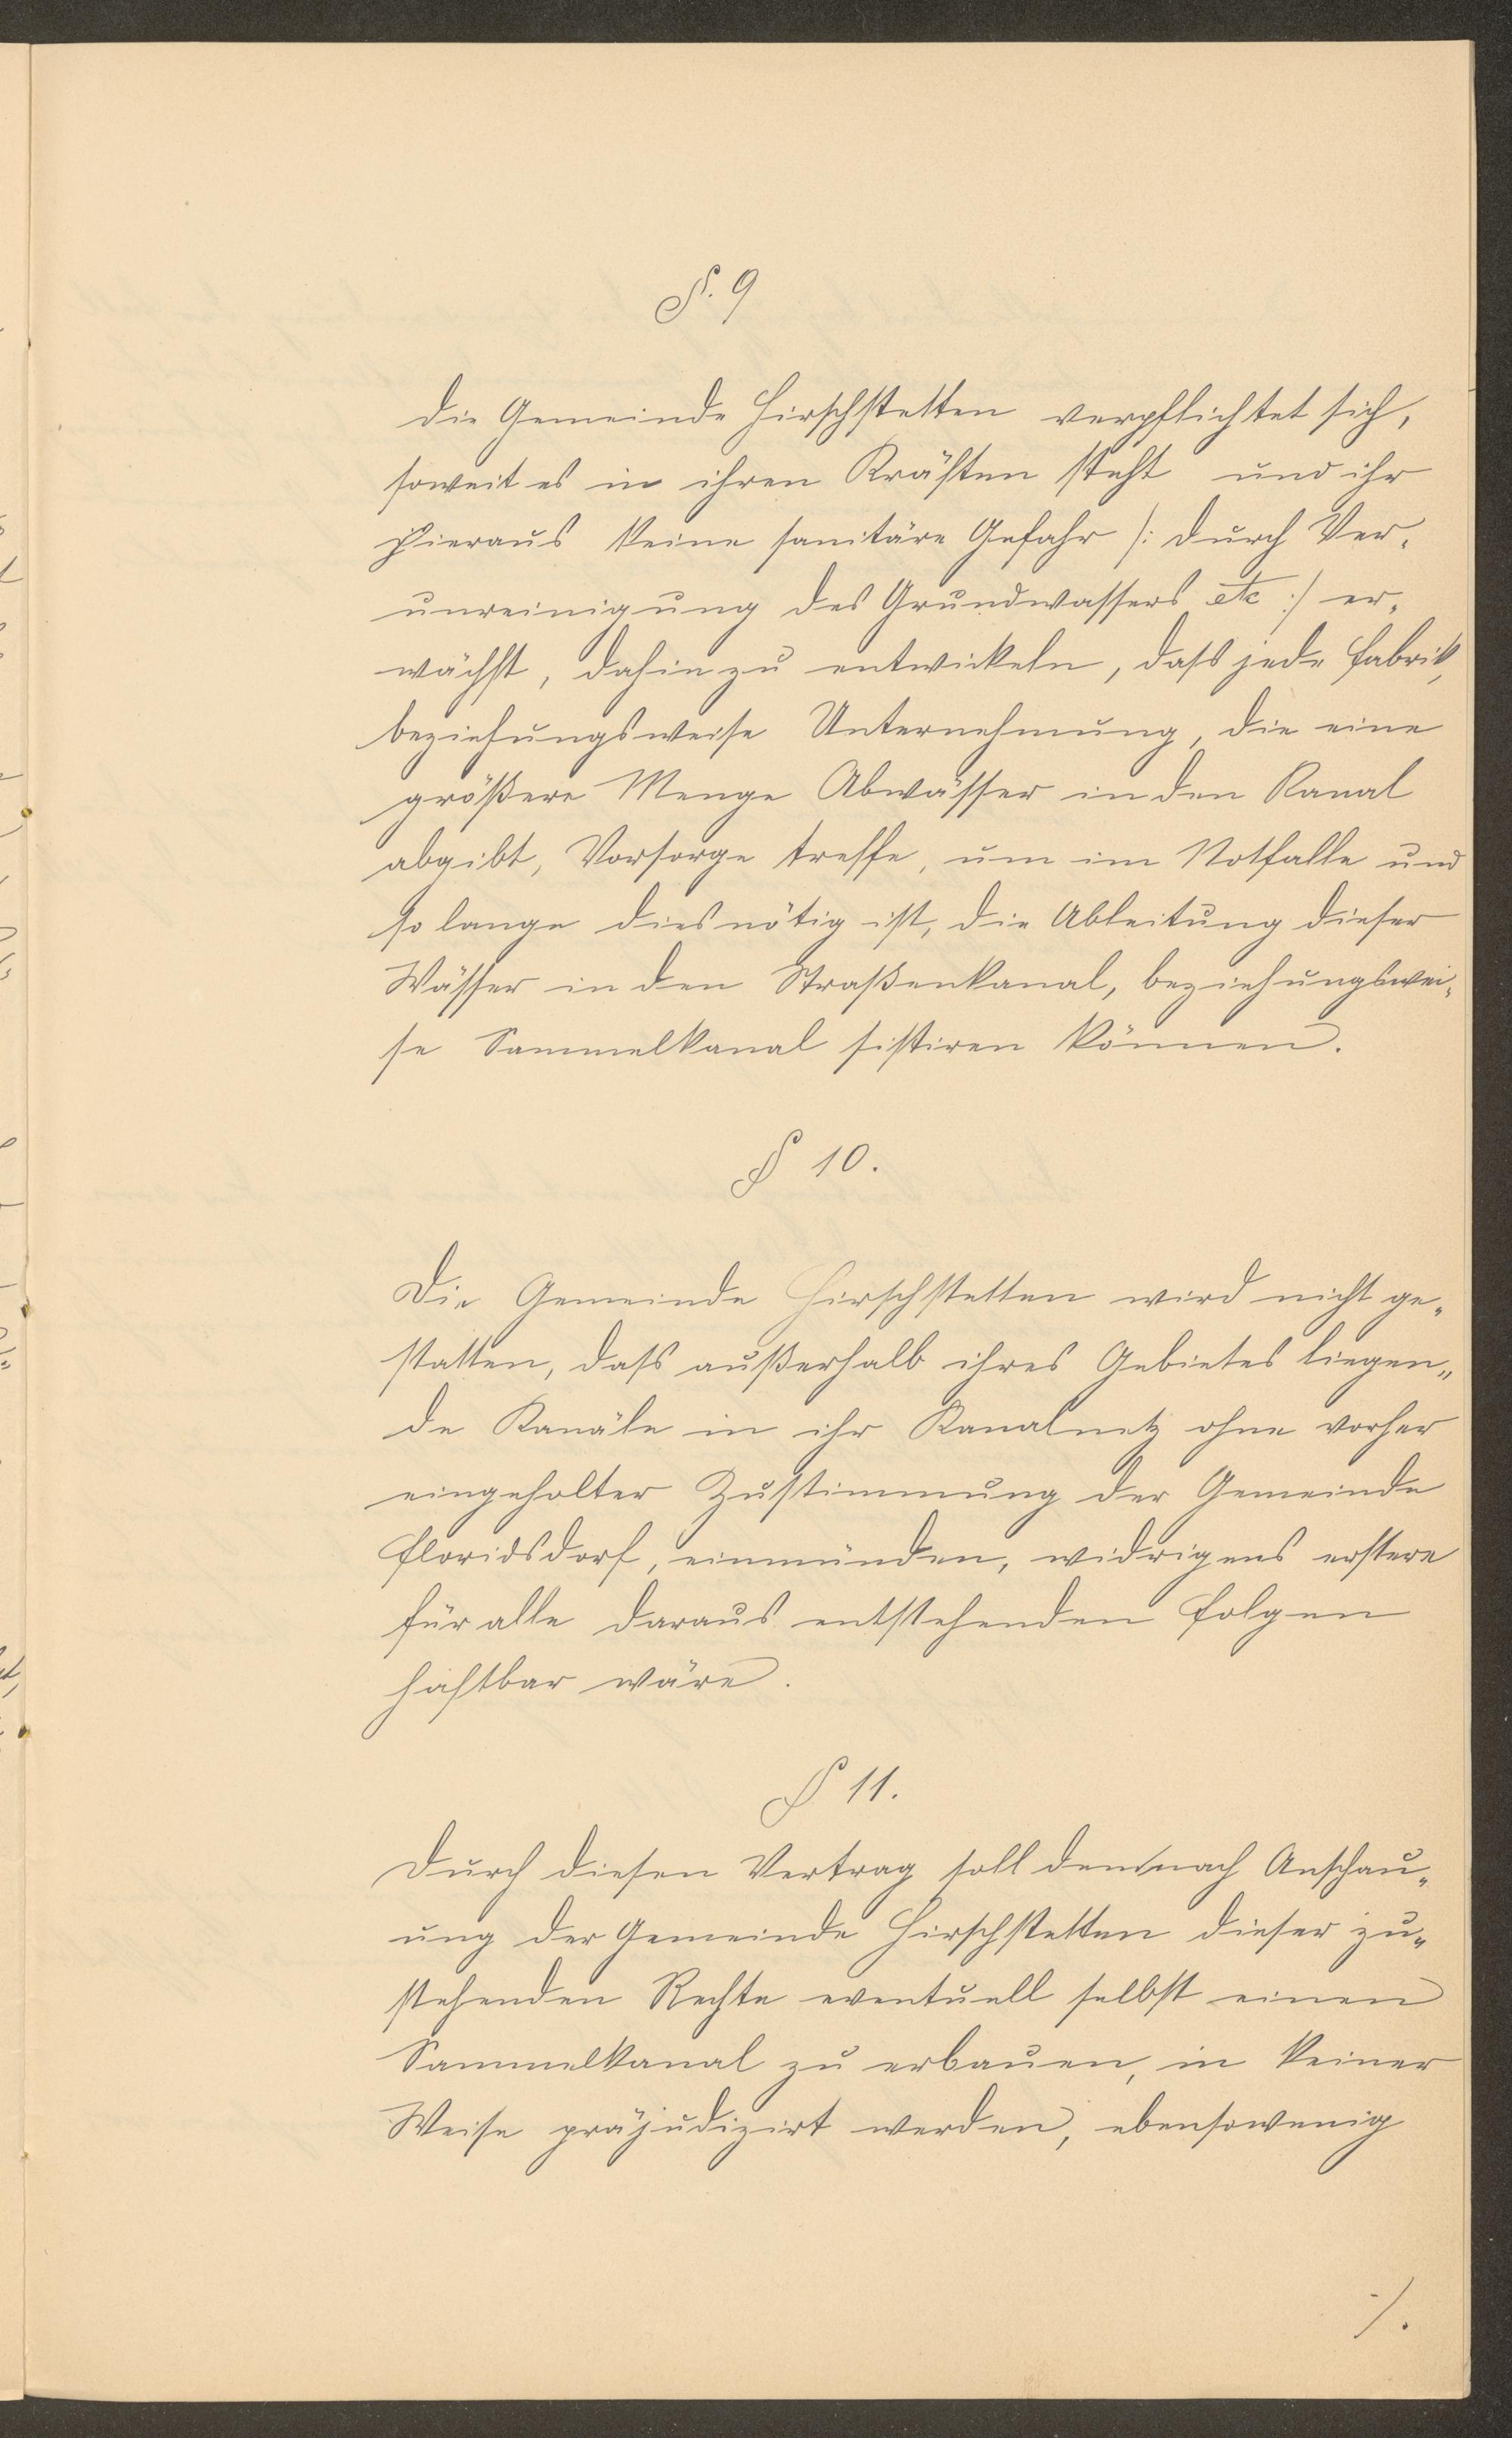 §. 9
Die Gemeinde Hirschstetten verpflichtet sich,
soweit es in ihren Kräften steht und ihr
hieraus keine sanitäre Gefahr /: durch Ver-
unreinigung des Grundwassers etc :/ er-
wächst, dahin zu entwickeln, dass jede Fabrik,
beziehungsweise Unternehmung, die eine
größere Menge Abwässer in den Kanal
abgibt, Vorsorge treffe, um im Notfalle und
so lange dies nötig ist, die Ableitung dieser
Wässer in den Straßenkanal, beziehungswei-
se Sammelkanal sistiren können.
§ 10.
Die Gemeinde Hirschstetten wird nicht ge-
statten, dass außerhalb ihres Gebietes liegen-
de Kanäle in ihr Kanalnetz ohne vorher
eingeholter Zustimmung der Gemeinde
Floridsdorf, einmünden, widrigens erstere
für alle daraus entstehenden Folgen
haftbar wäre.
§ 11.
Durch diesen Vertrag soll dem nach Anschau-
ung der Gemeinde Hirschstetten dieser zu-
stehenden Rechte eventuell selbst einen
Sammelkanal zu erbauen, in keiner
Weise präjudizirt werden, ebensowenig
./.